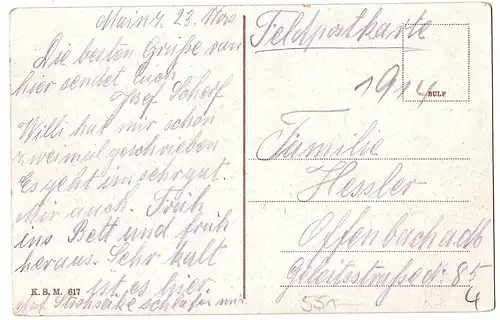 Mainz. 23. Nov.
Die besten Grüße von
hier sendet Euch
Josef Scherf
Willi hat mir schon
zweimal geschrieben
Es geht im sehr gut.
Mir auch. Früh
ins Bett und früh
heraus. Sehr kalt
ist es hier.
Auf Strohsäcke schlafen wir
K. S. M. 617
Feldpostkarte
1914
BULF
Familie
Hessler
Offenbach a.M.
85
4